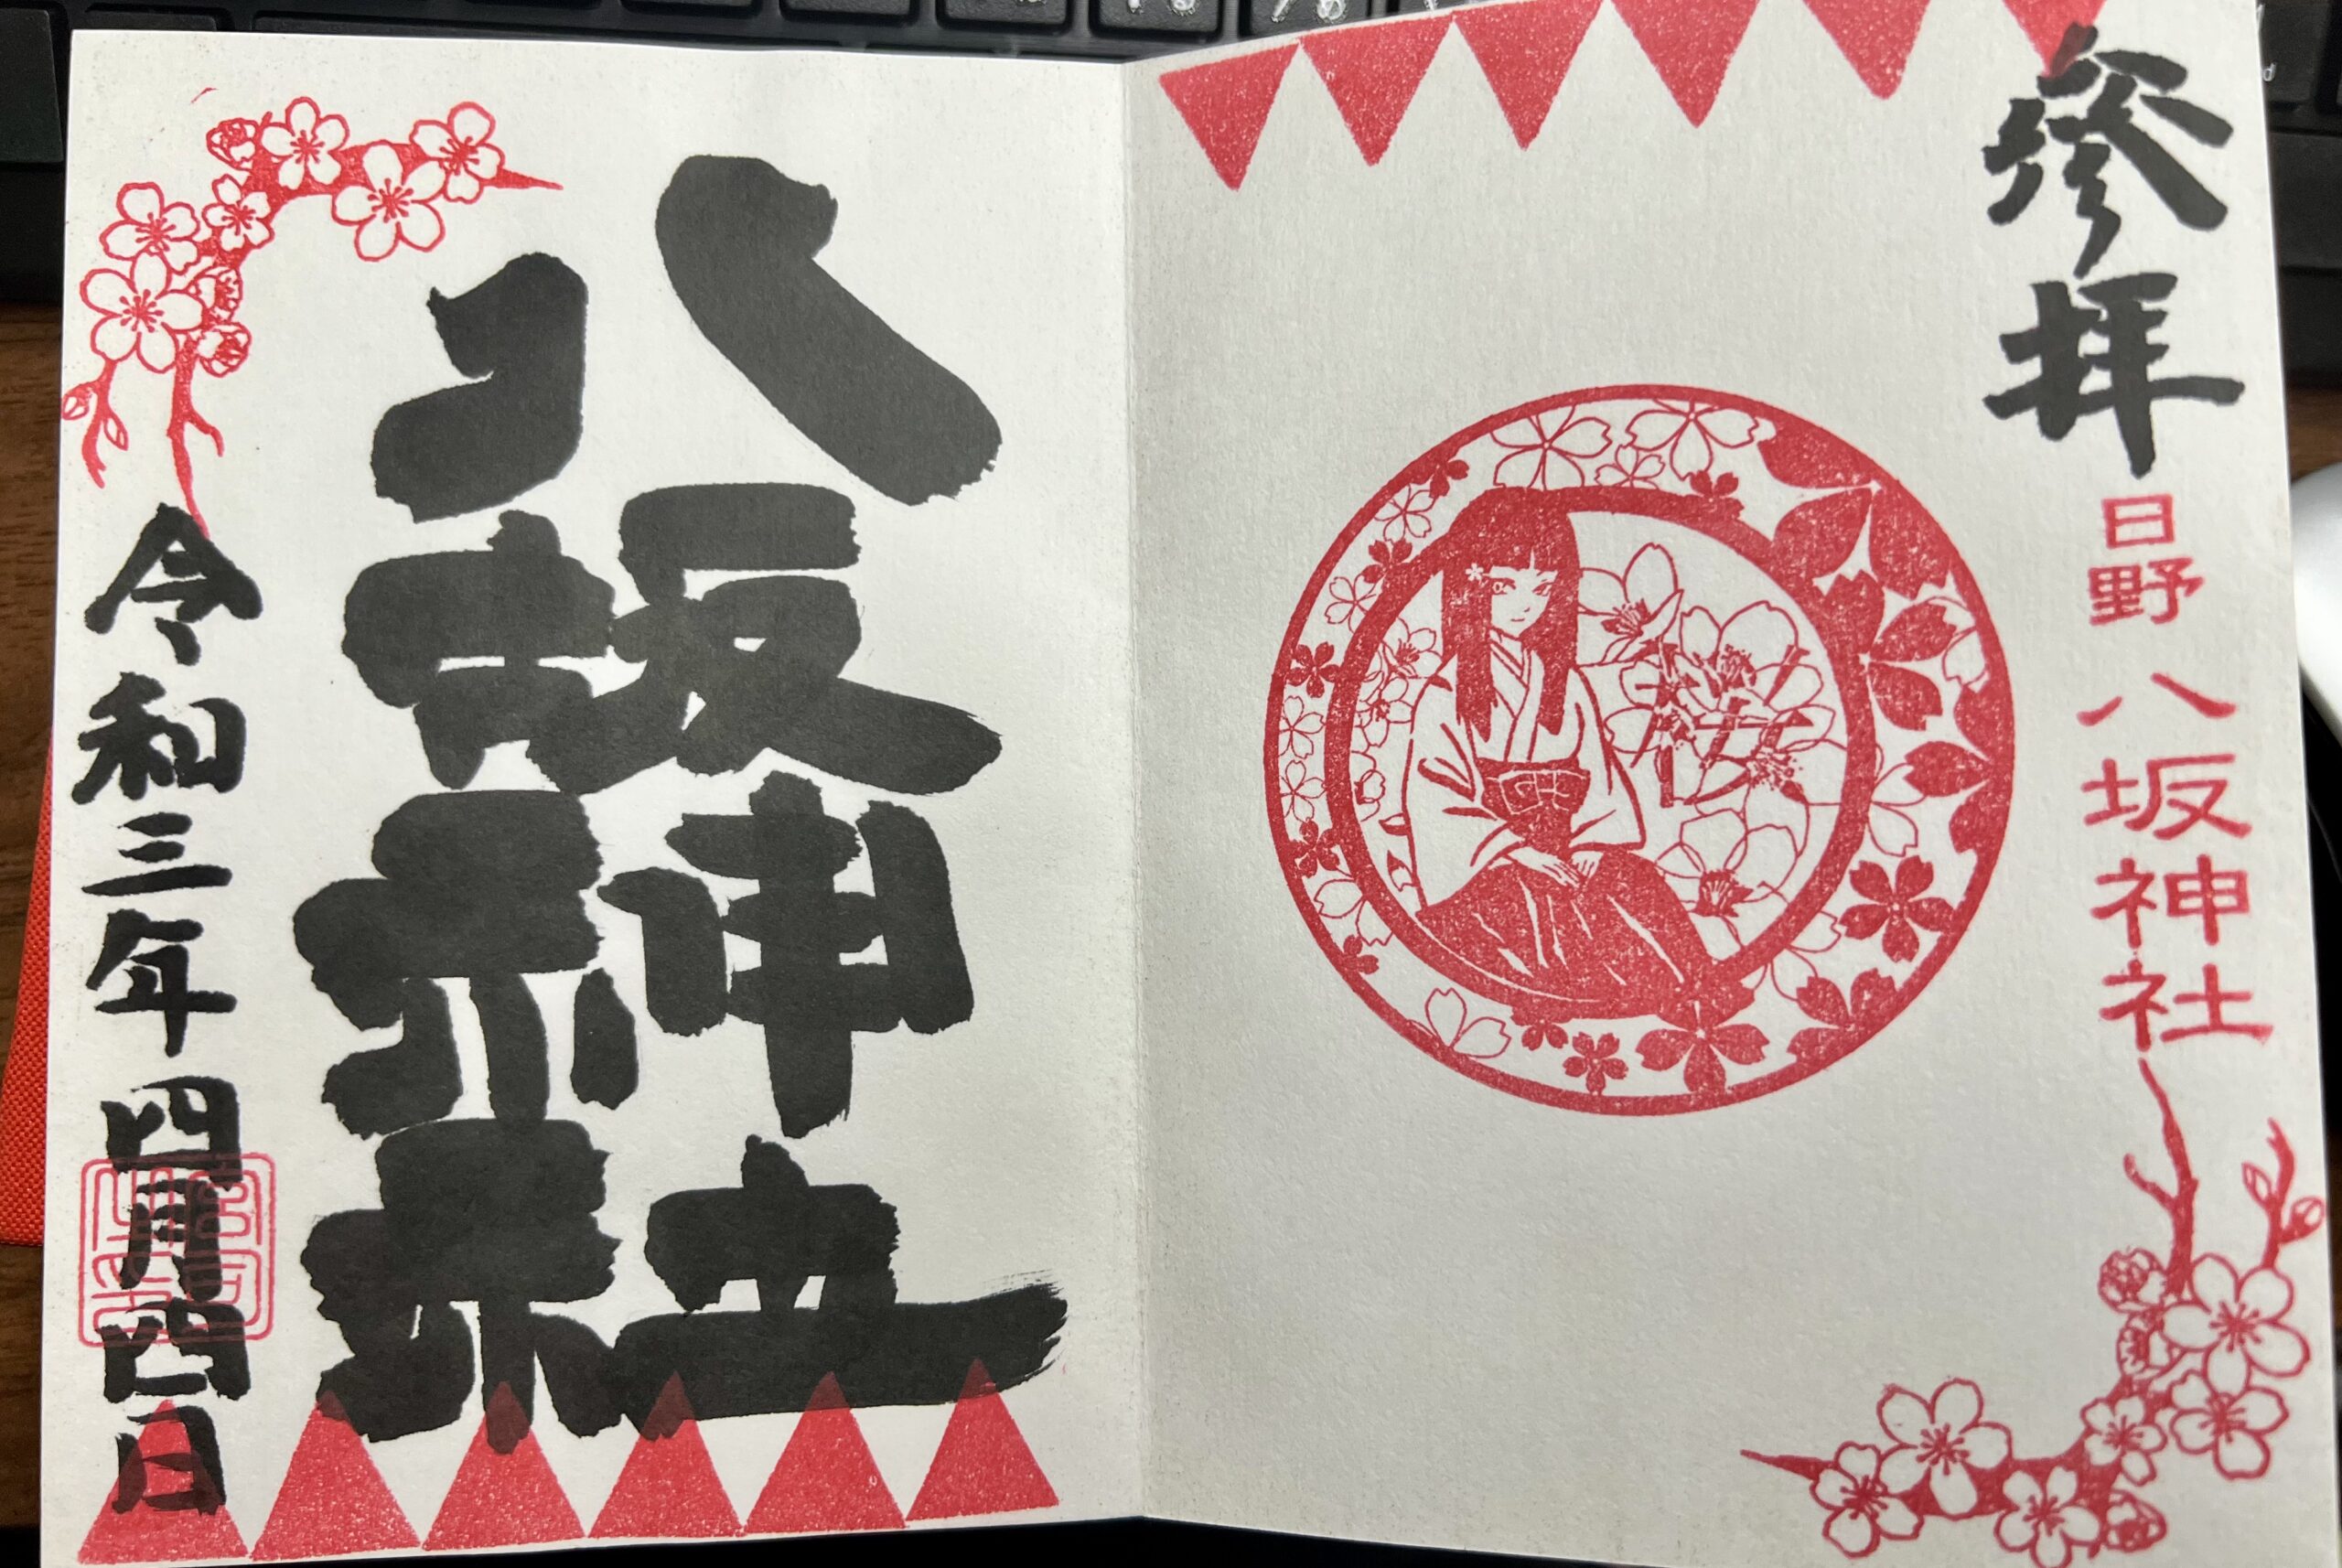 参拝
日野
八坂神社
桜
八坂神社
令和三年四月四日